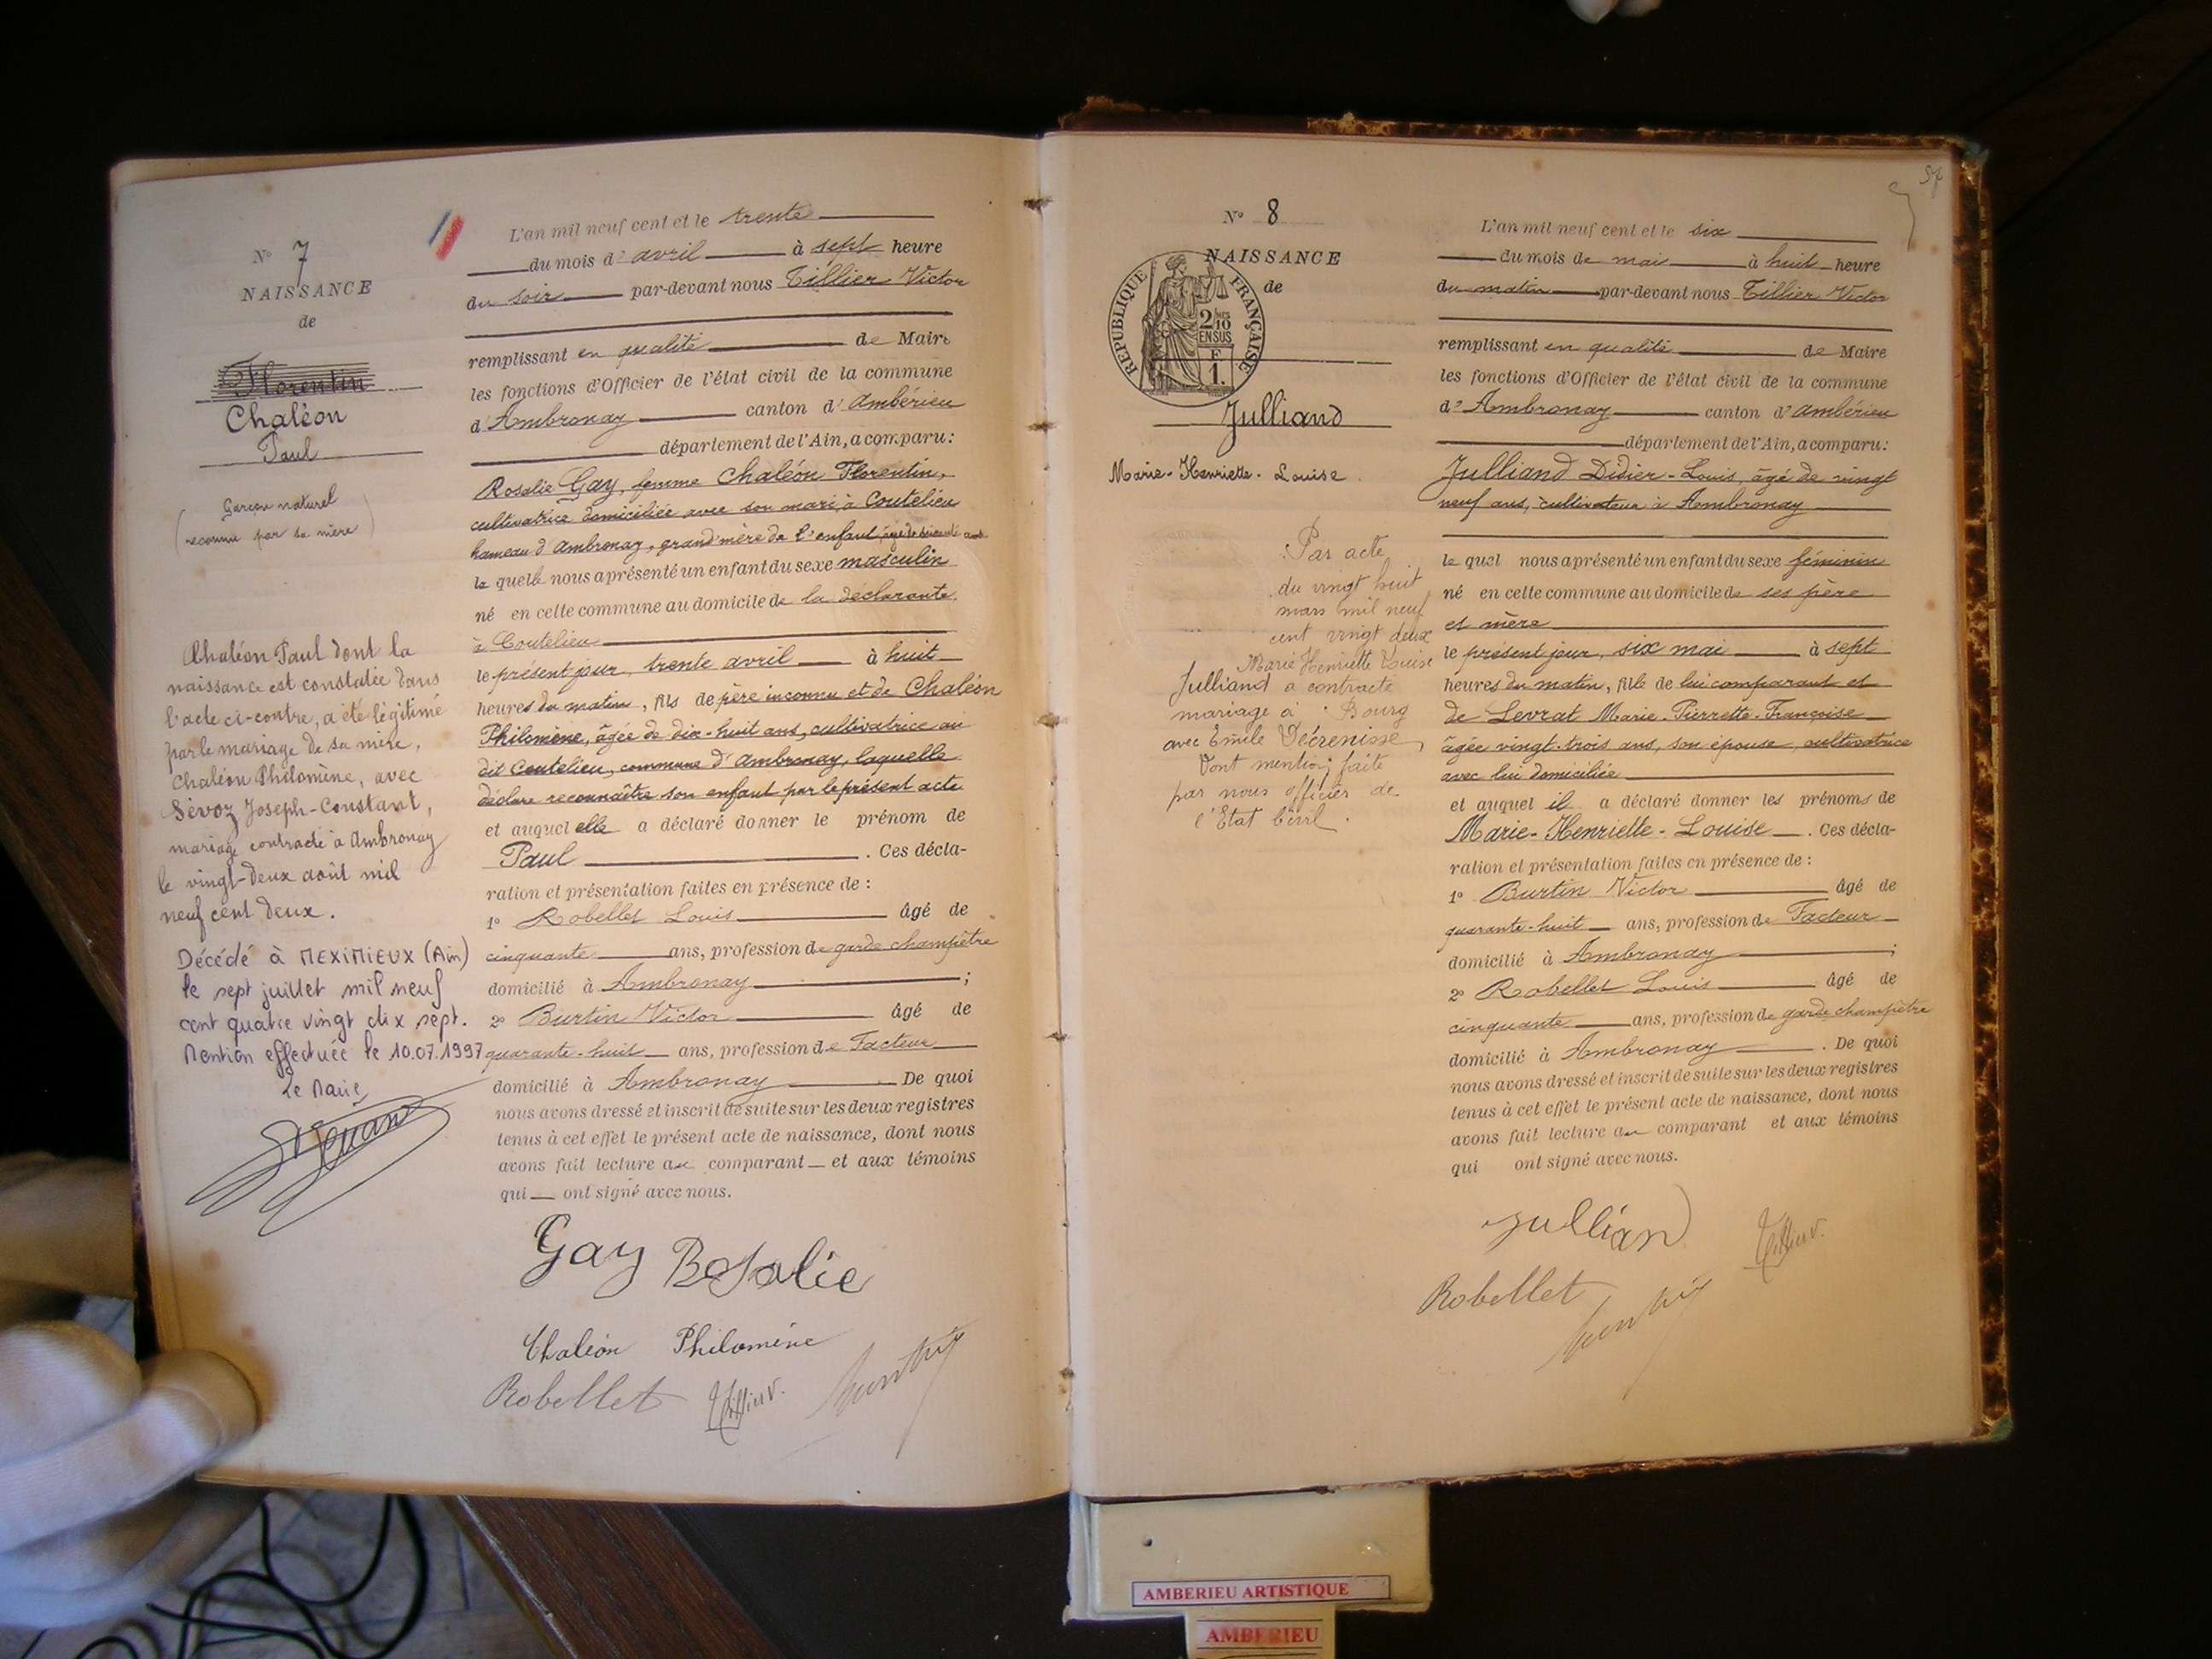 N° 7
NAISSANCE
de
Florentin
Chaléon
Paul
Garçon naturel
(reconnu par sa mère)
Chaléon Paul dont la
naissance est constatée dans
l'acte ci-contre, a été légitimé
par le mariage de sa mère,
Chaléon Philomène, avec
Sévoz Joseph-Constant,
mariage contracté à Ambronay
le vingt-deux août mil
neuf cent deux.
Décédé à MEXIMIEUX (Ain)
le sept juillet mil neuf
cent quatre vingt dix sept.
Mention effectuée le 10.07.1997
Le Maire,
L'an mil neuf cent et le trente
du mois d'avril à sept heure
du soir par-devant nous Tillier Victor
remplissant en qualité de Maire
les fonctions d'Officier de l'état civil de la commune
d'Ambronay canton d'Ambérieu
département de l'Ain, a comparu:
Rosalie Gay, femme Chaléon Florentin,
cultivatrice domiciliée avec son mari, à Coutelieu
hameau d'Ambronay, grand'mère de l'enfant, âgée de soixante ans
la quelle nous a présenté un enfant du sexe masculin
né en cette commune au domicile de la déclarante,
à Coutelieu
le présent jour, trente avril à huit
heures du matin, fils de père inconnu et de Chaléon
Philomène, âgée de dix-huit ans, cultivatrice au
dit Coutelieu, commune d'Ambronay, laquelle
déclare reconnaître son enfant par le présent acte
et auquel elle a déclaré donner le prénom de
Paul . Ces décla-
ration et présentation faites en présence de :
1° Robellet Louis âgé de
cinquante ans, profession de garde champêtre
domicilié à Ambronay ;
2° Burtin Victor âgé de
quarante-huit ans, profession de Facteur
domicilié à Ambronay De quoi
nous avons dressé et inscrit de suite sur les deux registres
tenus à cet effet le présent acte de naissance, dont nous
avons fait lecture au comparant et aux témoins
qui ont signé avec nous.
Gay Rosalie
Chaléon Philomène
Robellet Tillier V.
57
N° 8
NAISSANCE
de
RÉPUBLIQUE FRANÇAISE
2/10
EN SUS
F.
1.
Julliand
Marie-Henriette-Louise.
Par acte
du vingt huit
mars mil neuf
cent vingt deux
Marie Henriette Louise
Julliand a contracté
mariage à Bourg
avec Emile Décrenisse,
Dont mention faite
par nous officier de
l'Etat Civil.
L'an mil neuf cent et le six
du mois de mai à huit heure
du matin par-devant nous Tillier Victor
remplissant en qualité de Maire
les fonctions d'Officier de l'état civil de la commune
d'Ambronay canton d'Ambérieu
département de l'Ain, a comparu:
Julliand Didier-Louis, âgé de vingt
neuf ans, cultivateur à Ambronay
le quel nous a présenté un enfant du sexe féminin
né en cette commune au domicile de ses père
et mère
le présent jour, six mai à sept
heures du matin, fille de lui comparant et
de Levrat Marie-Pierrette-Françoise
âgée vingt-trois ans, son épouse, cultivatrice
avec lui domiciliée
et auquel il a déclaré donner les prénoms de
Marie-Henriette-Louise . Ces décla-
ration et présentation faites en présence de :
1° Burtin Victor âgé de
quarante-huit ans, profession de Facteur
domicilié à Ambronay ;
2° Robellet Louis âgé de
cinquante ans, profession de garde champêtre
domicilié à Ambronay . De quoi
nous avons dressé et inscrit de suite sur les deux registres
tenus à cet effet le présent acte de naissance, dont nous
avons fait lecture au comparant et aux témoins
qui ont signé avec nous.
Jullian
Tillier V.
Robellet
AMBERIEU ARTISTIQUE
AMBERIEU